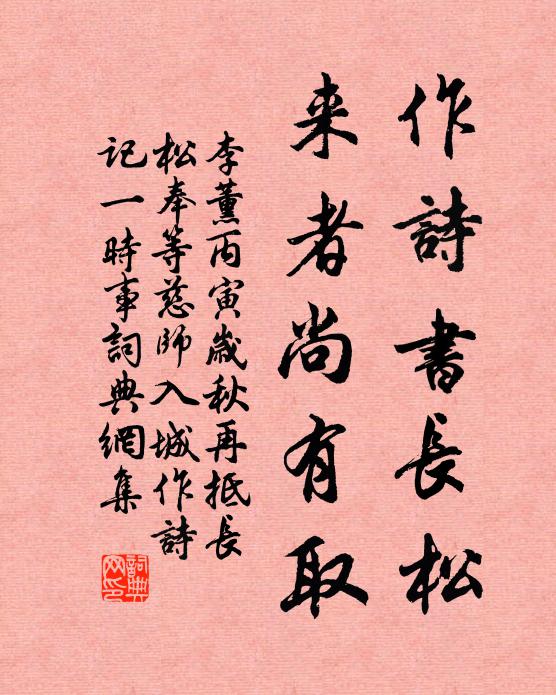 作詩書長松
来者尚有取
李薰丙寅歲秋再抵長
松奉等慈師入城作詩
記一時事詞典網集
詞典网印